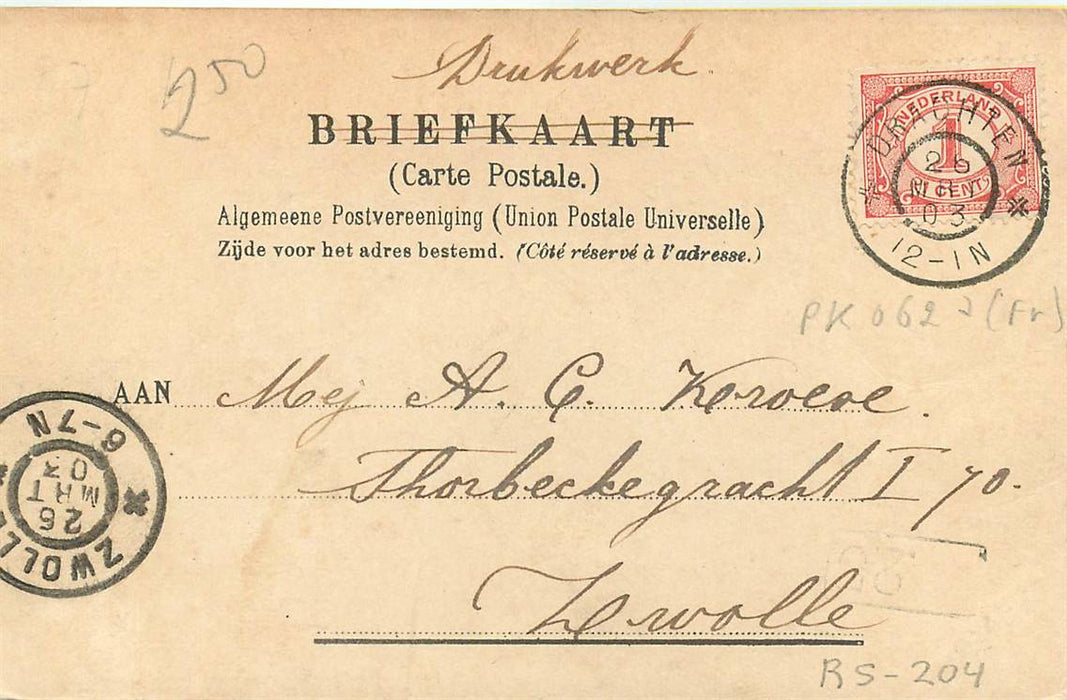 250
Drukwerk
BRIEFKAART
(Carte Postale.)
Algemeene Postvereeniging (Union Postale Universelle)
Zijde voor het adres bestemd. (Côté réservé à l'adresse.)
NEDERLAND
1
CENT
DRACHTEN
26
03
12-1N
PK 062 (Fr)
AAN Mej A. C.
Thorbeckegracht I 70.
Zwolle
6-7N
26
MRT
03
ZWOLLE
RS-204